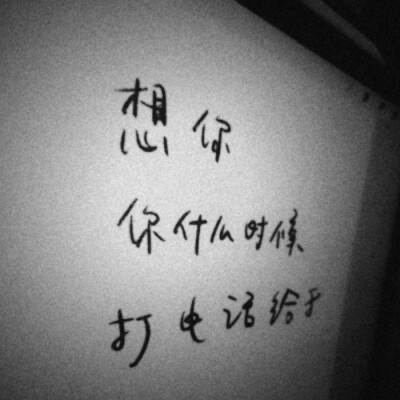 想你
你什么时候
打电话给予